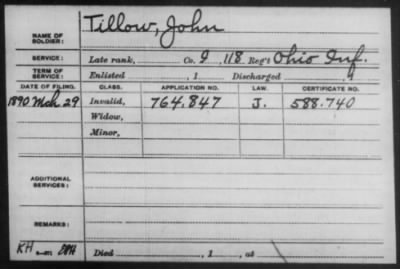 Tillow, John
NAME OF
SOLDIER:
SERVICE: Late rank, Co. I, 118 Reg't Ohio Inf.
TERM OF
SERVICE: Enlisted , 1 Discharged , 1
DATE OF FILING. CLASS. APPLICATION NO. LAW. CERTIFICATE NO.
1890 Mch 29 Invalid, 764.847 J. 588.740
Widow,
Minor,
ADDITIONAL
SERVICES:
REMARKS:
KH
Died , 1 , at